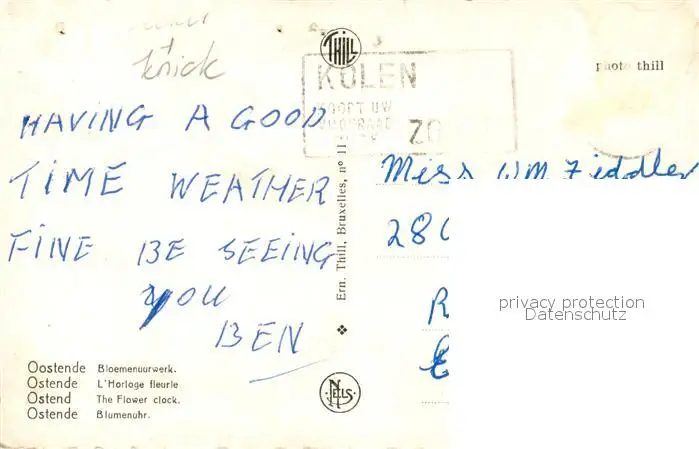 knick
THILL
photo thill
KOLEN
KOOPT UW
ZO
HAVING A GOOD
TIME WEATHER
FINE BE SEEING
YOU
BEN
Miss WM Fiddler
280
R
E
privacy protection
Datenschutz
Ern. Thill, Bruxelles, nº 11
Oostende Bloemenuurwerk.
Ostende L'Horloge fleurie
Ostend The Flower clock.
Ostende Blumenuhr.
NELS